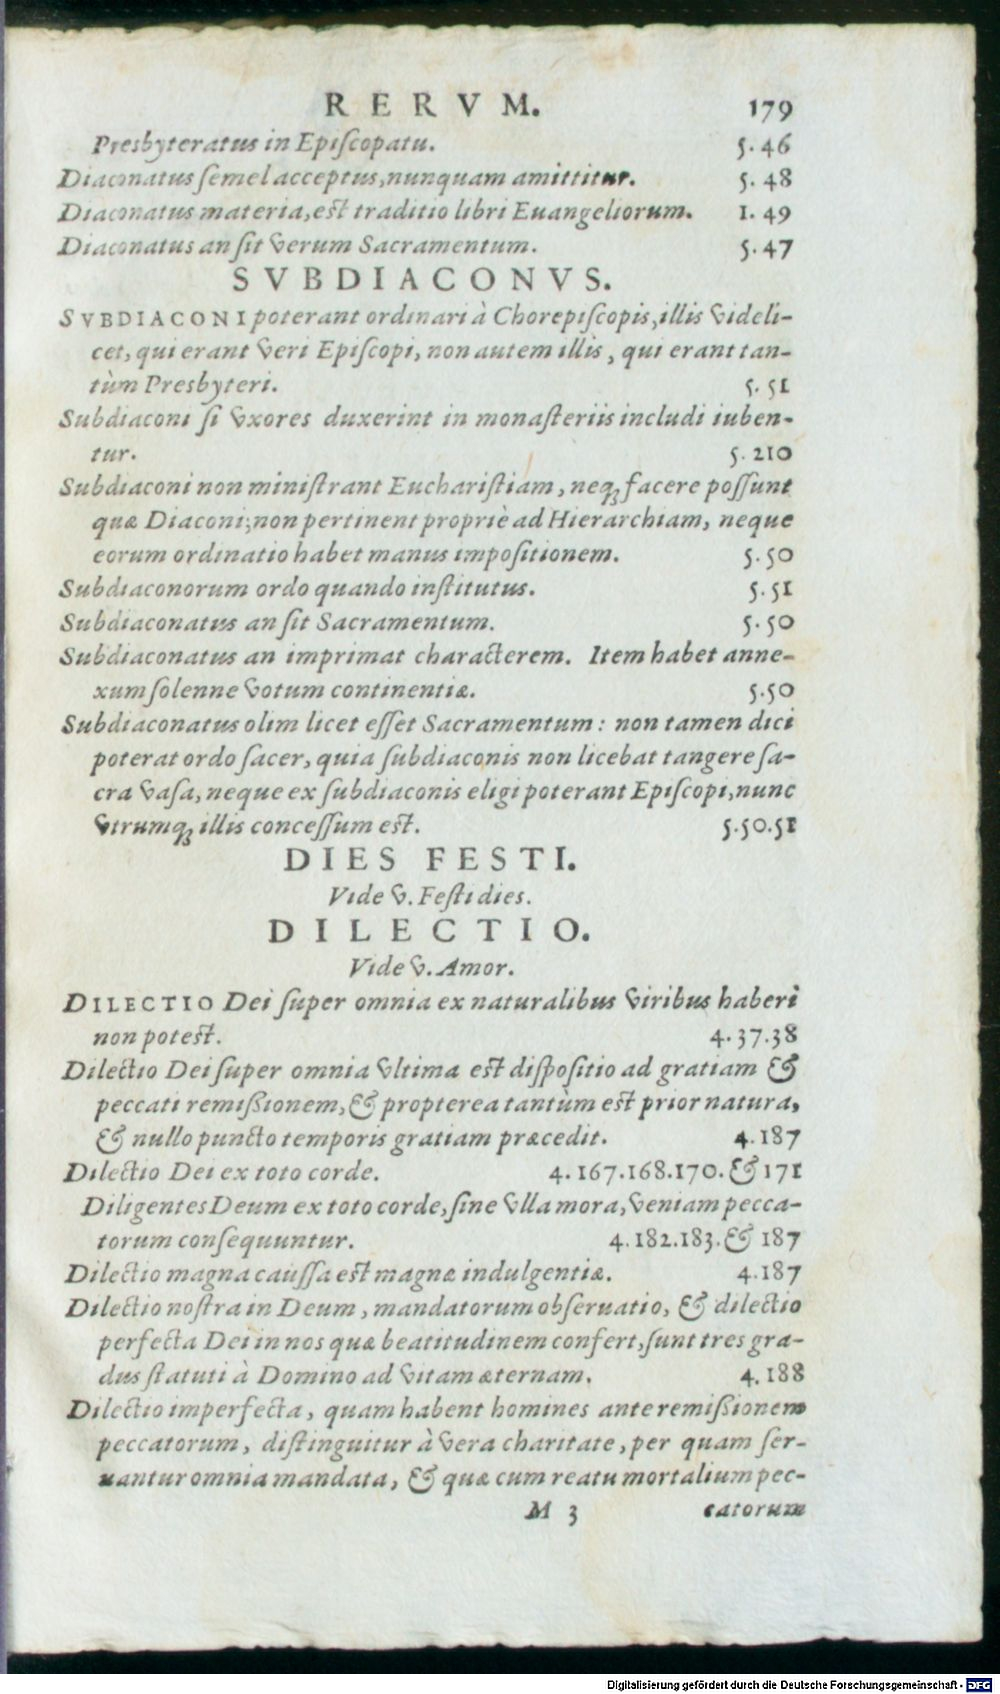 RERVM. 179
Presbyteratus in Episcopatu. 5. 46
Diaconatus semel acceptus, nunquam amittitur. 5. 48
Diaconatus materia, est traditio libri Euangeliorum. 1. 49
Diaconatus an sit verum Sacramentum. 5. 47
SVBDIACONVS.
SVBDIACONI poterant ordinari à Chorepiscopis, illis videli-
cet, qui erant veri Episcopi, non autem illis, qui erant tan-
tùm Presbyteri. 5. 51
Subdiaconi si vxores duxerint in monasteriis includi iuben-
tur. 5. 210
Subdiaconi non ministrant Eucharistiam, neq; facere possunt
quæ Diaconi; non pertinent propriè ad Hierarchiam, neque
eorum ordinatio habet manus impositionem. 5. 50
Subdiaconorum ordo quando institutus. 5. 51
Subdiaconatus an sit Sacramentum. 5. 50
Subdiaconatus an imprimat characterem. Item habet anne-
xum solenne votum continentiæ. 5. 50
Subdiaconatus olim licet esset Sacramentum: non tamen dici
poterat ordo sacer, quia subdiaconis non licebat tangere sa-
cra vasa, neque ex subdiaconis eligi poterant Episcopi, nunc
vtrumq; illis concessum est. 5. 50. 51
DIES FESTI.
Vide v. Festi dies.
DILECTIO.
Vide v. Amor.
DILECTIO Dei super omnia ex naturalibus viribus haberi
non potest. 4. 37. 38
Dilectio Dei super omnia vltima est dispositio ad gratiam &
peccati remißionem, & propterea tantùm est prior natura,
& nullo puncto temporis gratiam præcedit. 4. 187
Dilectio Dei ex toto corde. 4. 167. 168. 170. & 171
Diligentes Deum ex toto corde, sine vlla mora, veniam pecca-
torum consequuntur. 4. 182. 183. & 187
Dilectio magna caussa est magnæ indulgentiæ. 4. 187
Dilectio nostra in Deum, mandatorum obseruatio, & dilectio
perfecta Dei in nos quæ beatitudinem confert, sunt tres gra-
dus statuti à Domino ad vitam æternam. 4. 188
Dilectio imperfecta, quam habent homines ante remißionem
peccatorum, distinguitur à vera charitate, per quam ser-
uantur omnia mandata, & quæ cum reatu mortalium pec-
M 3 catorum
Digitalisierung gefördert durch die Deutsche Forschungsgemeinschaft - DFG